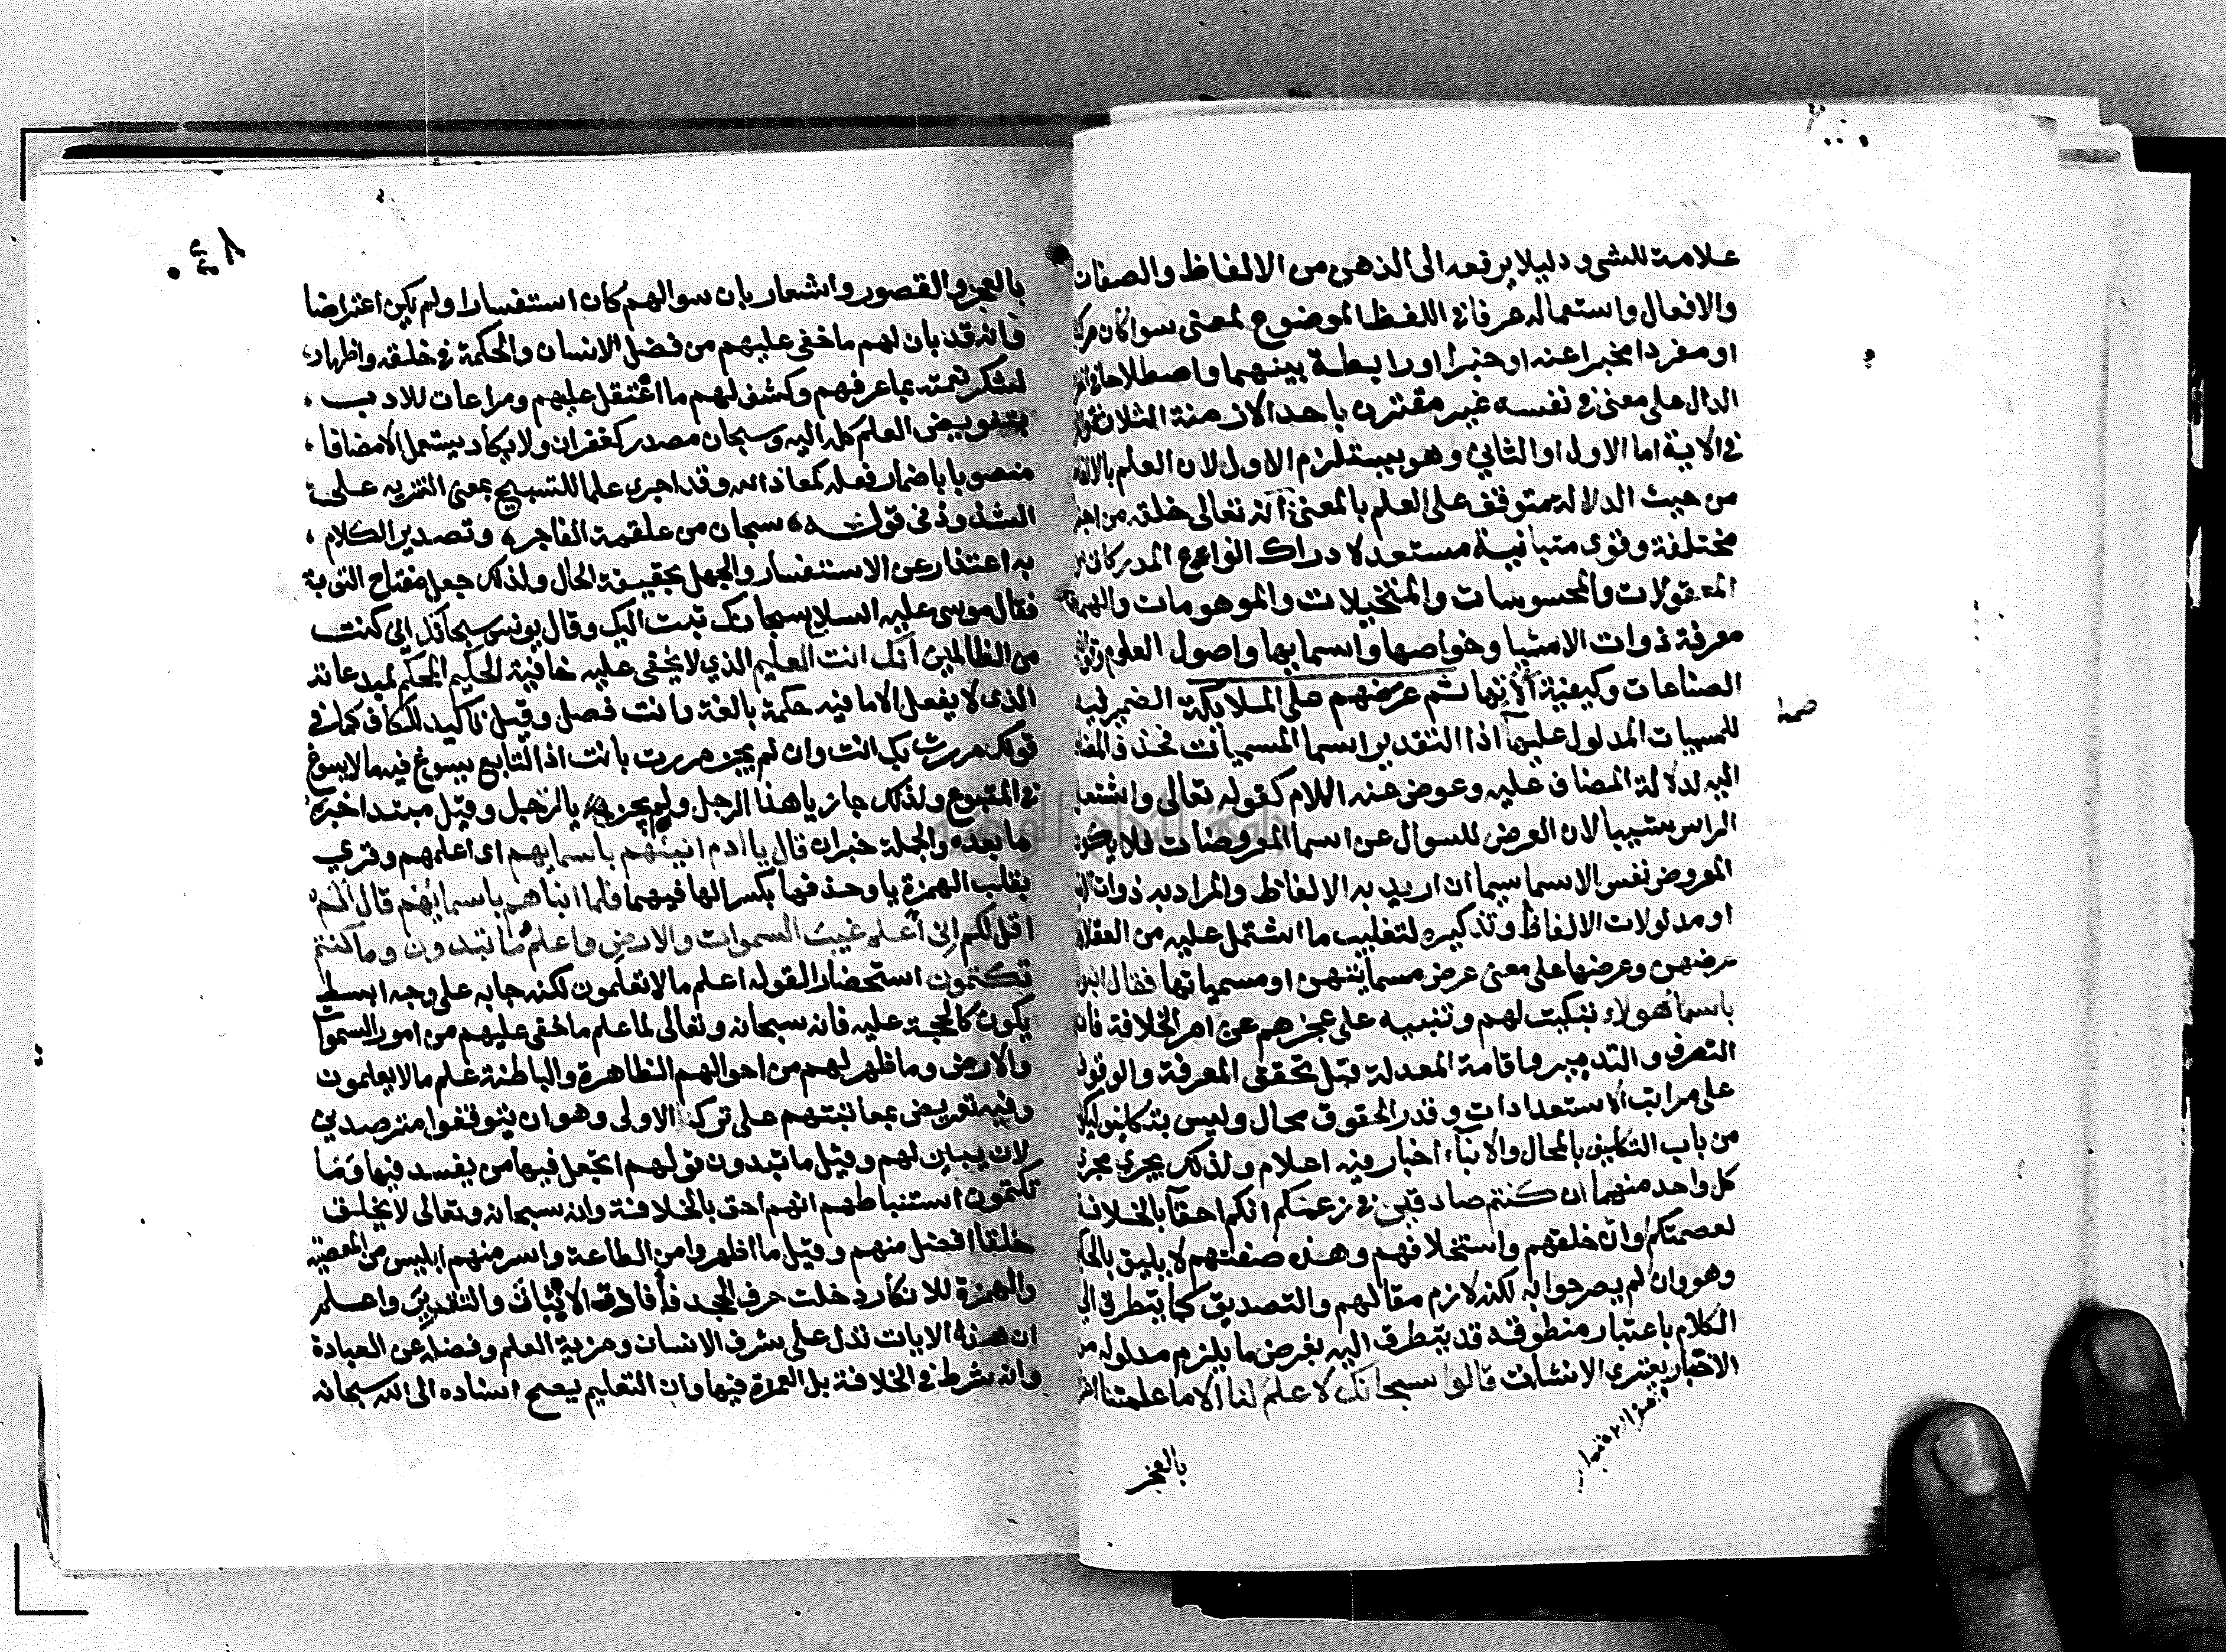 علامة للشى ودليلا يرفعه الى الذهن من الالفاظ والصفات
والافعال واستعماله عرفا فى اللفظ الموضوع لمعنى سوا كان
او مفردا مخبرا عنه او خبرا او رابطة بينهما واصطلاحا فى
الدال على معنى فى نفسه غير مقترن باحد الازمنة الثلاث
فى الاية اما الاول او الثاني وهو يستلزم الاول لان العلم
من حيث الدلالة متوقف على العلم بالمعنى انه تعالى خلقه من
مختلفة وقوى متباينة مستعد لادراك انواع المدركات
المعقولات والمحسوسات والمتخيلات والموهومات والهمه
معرفة ذوات الاشيا وخواصها واسمايها واصول العلوم
الصناعات وكيفية الاتها ثم عرضهم على الملايكة الضمير فيه
للمسميات المدلول عليها اذا التقدير اسما المسميات فحذف
اليه لدلالة المضاف عليه وعوض عنه اللام كقوله تعالى واشتعل
الراس شيبا لان العرض للسوال عن اسما المعروضات فلا يكون
المعروض نفس الاسما سيما ان اريد به الالفاظ والمراد به ذوات
او مدلولات الالفاظ وتذكيره لتغليب ما اشتمل عليه من العقلا
عرضهن وعرضها على معنى عرض مسماتهن او مسمياتها فقال
باسما هولاء تبكيت لهم وتنبيه على عجزهم عن امر الخلافة فان
التصرف والتدبير واقامة المعدلة قبل تحقق المعرفة والوقوف
على مراتب الاستعدادات وقدر الحقوق محال وليس بتكليف
من باب التكليف بالمحال والانباء اخبار فيه اعلام ولذلك يجري مجرى
كل واحد منهما ان كنتم صادقين فى زعمكم انكم احقا بالخلافة
لعصمتكم وان خلقهم واستخلافهم وهذه صفتهم لا يليق
وهو وان لم يصرحوا به لكنه لازم مقالهم والتصديق كما يتطرق الى
الكلام باعتبار منطوقه قد يتطرق اليه بغرض ما يلزم مدلوله من
الاخبار يعتري الانشات قالوا سبحانك لا علم لنا الا ما علمتنا
بالعجز
بالعجز والقصور واشعار بان سوالهم كان استفسارا ولم يكن اعتراضا
وانه قد بان لهم ما خفى عليهم من فضل الانسان والحكمة فى خلقه واظهار
لشكر نعمته بما عرفهم وكشف لهم ما اعتقل عليهم ومراعات للادب
بتفويض العلم كله اليه وسبحان مصدر كغفران ولا يكاد يستعمل الا مضافا
منصوبا باضمار فعله كمعاذ الله وقد اجرى علما للتسبيح بمعنى التنزيه على
الشذوذ فى قوله سبحان من علقمة الفاجر وتصدير الكلام
به اعتذار عن الاستفسار والجهل بحقيقة الحال ولذلك جعل مفتاح التوبة
فقال موسى عليه السلام سبحانك تبت اليك وقال يونس سبحانك اني كنت
من الظالمين انك انت العليم الذي لا يخفى عليه خافية الحكيم المحكم لمبدعاته
الذى لا يفعل الا ما فيه حكمة بالغة وانت فصل وقيل تاكيد للكاف كما فى
قولك مررت بك انت وان لم يجز مررت بانت اذ التابع يسوغ فيه ما لا يسوغ
فى المتبوع ولذلك جاز يا هذا الرجل ولم يجز يا الرجل وقيل مبتدا خبره
ما بعده والجملة خبر ان قال يا ادم انبئهم باسمايهم اى اعلمهم وقرى
بقلب الهمزة يا وحذفها بكسر الها فيهما فلما انباهم باسمايهم قال الم
اقل لكم اني اعلم غيب السموات والارض واعلم ما تبدون وما كنتم
تكتمون استحضار لقوله اعلم ما لا تعلمون لكنه جا به على وجه ابسط
يكون كالحجة عليه فانه سبحانه وتعالى لما علم ما خفى عليهم من امور السموات
والارض وما ظهر لهم من احوالهم الظاهرة والباطنة علم ما لا يعلمون
وفيه تعريض بمعاتبتهم على ترك الاولى وهو ان يتوقفوا مترصدين
لان يبين لهم وقيل ما تبدون قولهم اتجعل فيها من يفسد فيها وما
تكتمون استنباطهم انهم احق بالخلافة وانه سبحانه وتعالى لا يخلق
خلقا افضل منهم وقيل ما اظهروا من الطاعة واسر منهم ابليس من المعصية
والهمزة للانكار دخلت حرف الجحد فأفادت الاثبات والتقرير واعلم
ان هذه الايات تدل على شرف الانسان ومزية العلم وفضله عن العبادة
وانه شرط فى الخلافة بل العمدة فيها وان التعليم يصح اسناده الى الله سبحانه